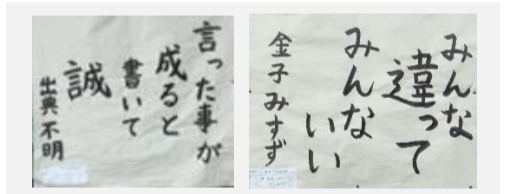 言った事が
成ると
書いて
誠
出典不明
みんな
違って
みんな
いい
金子みすず